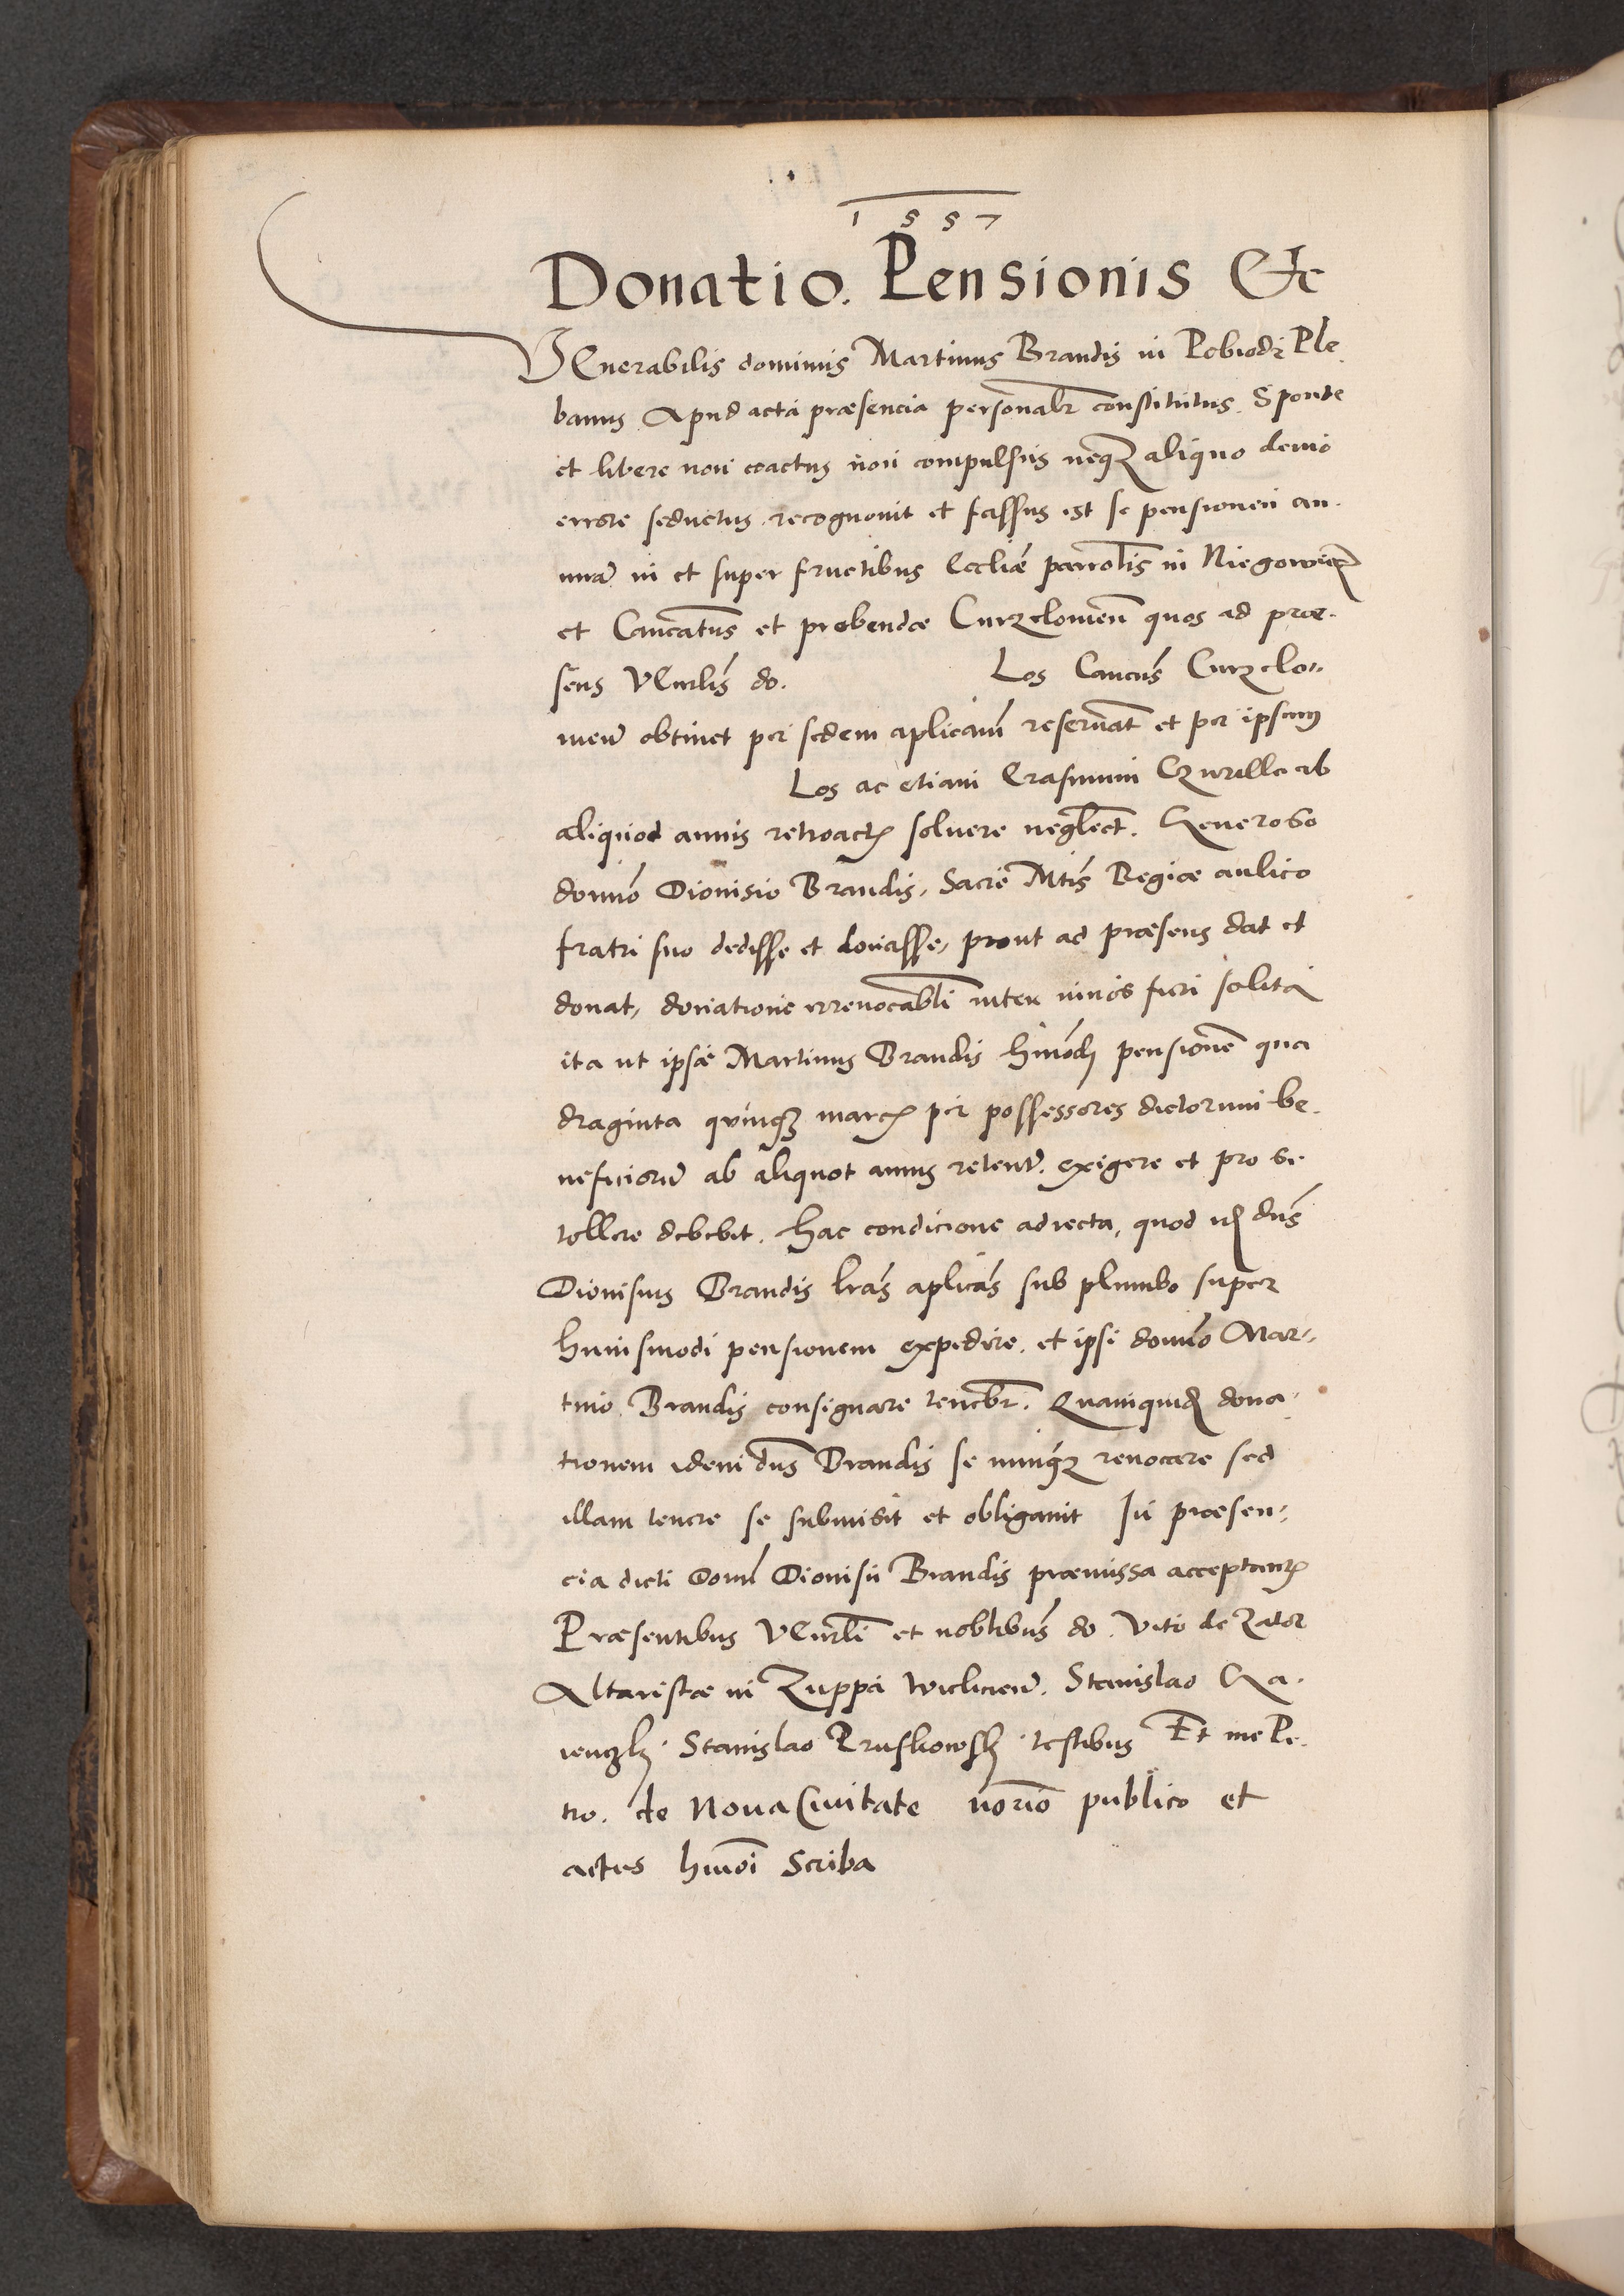 1 5 5 7
Donatio. Pensionis &c
VEnerabilis dominus Martinus Brandis in Pobiodr Ple
banus Apud acta præsencia personalr constitutus. Sponte
et libere non coactus non compulsus neqz aliquo deuio
errore seductus recognouit et fassus est se pensionem an.
nuā in et super fructibus Eccliæ parrolis in Niegowicz
et Cancatus et prebendæ Curzelomen quos ad præ.
sens VEnrlis do. Los Cancus Curzelo„
men obtinet per sedem aplicam reseruat et per ipsum
Los ac etiam Erasmum ab
aliquod annis retroactis soluere neglect. Generoso
domno Dionisio Brandis, Sacræ Mtis Regiæ aulico
fratri suo dedisse et donasse, prout ad præsens dat et
donat, donatione irreuocabli inter uiuos fieri solita
ita ut ipse Martinus Brandis hmodi pensionē qua
draginta quinqz marcis per possessores dictorum be.
neficiorū ab aliquot annis retent. exigere et pro se
tollere debebit. Hac condicione adiecta, quod id dns
Dionisius Brandis lras aplicas sub plumbo super
huiusmodi pensionem expedire. et ipsi domno Mar„
tino Brandis consignare tenebr. Quamquid dona„
tionem idem dns Brandis se nunqz reuocare sed
illam tenere se submisit et obligauit In præsen„
cia dicti Domi Dionisii Brandis præmissa acceptantis
Præsentibus VEnrli et noblibus do. Vito de Zator
Altaristæ in Zuppa wielicien. Stanislao
Stanislao Pruskowsky testibus Et me Pe.
tro. de Noua Ciuitate norio publico et
actus hmoi Scriba